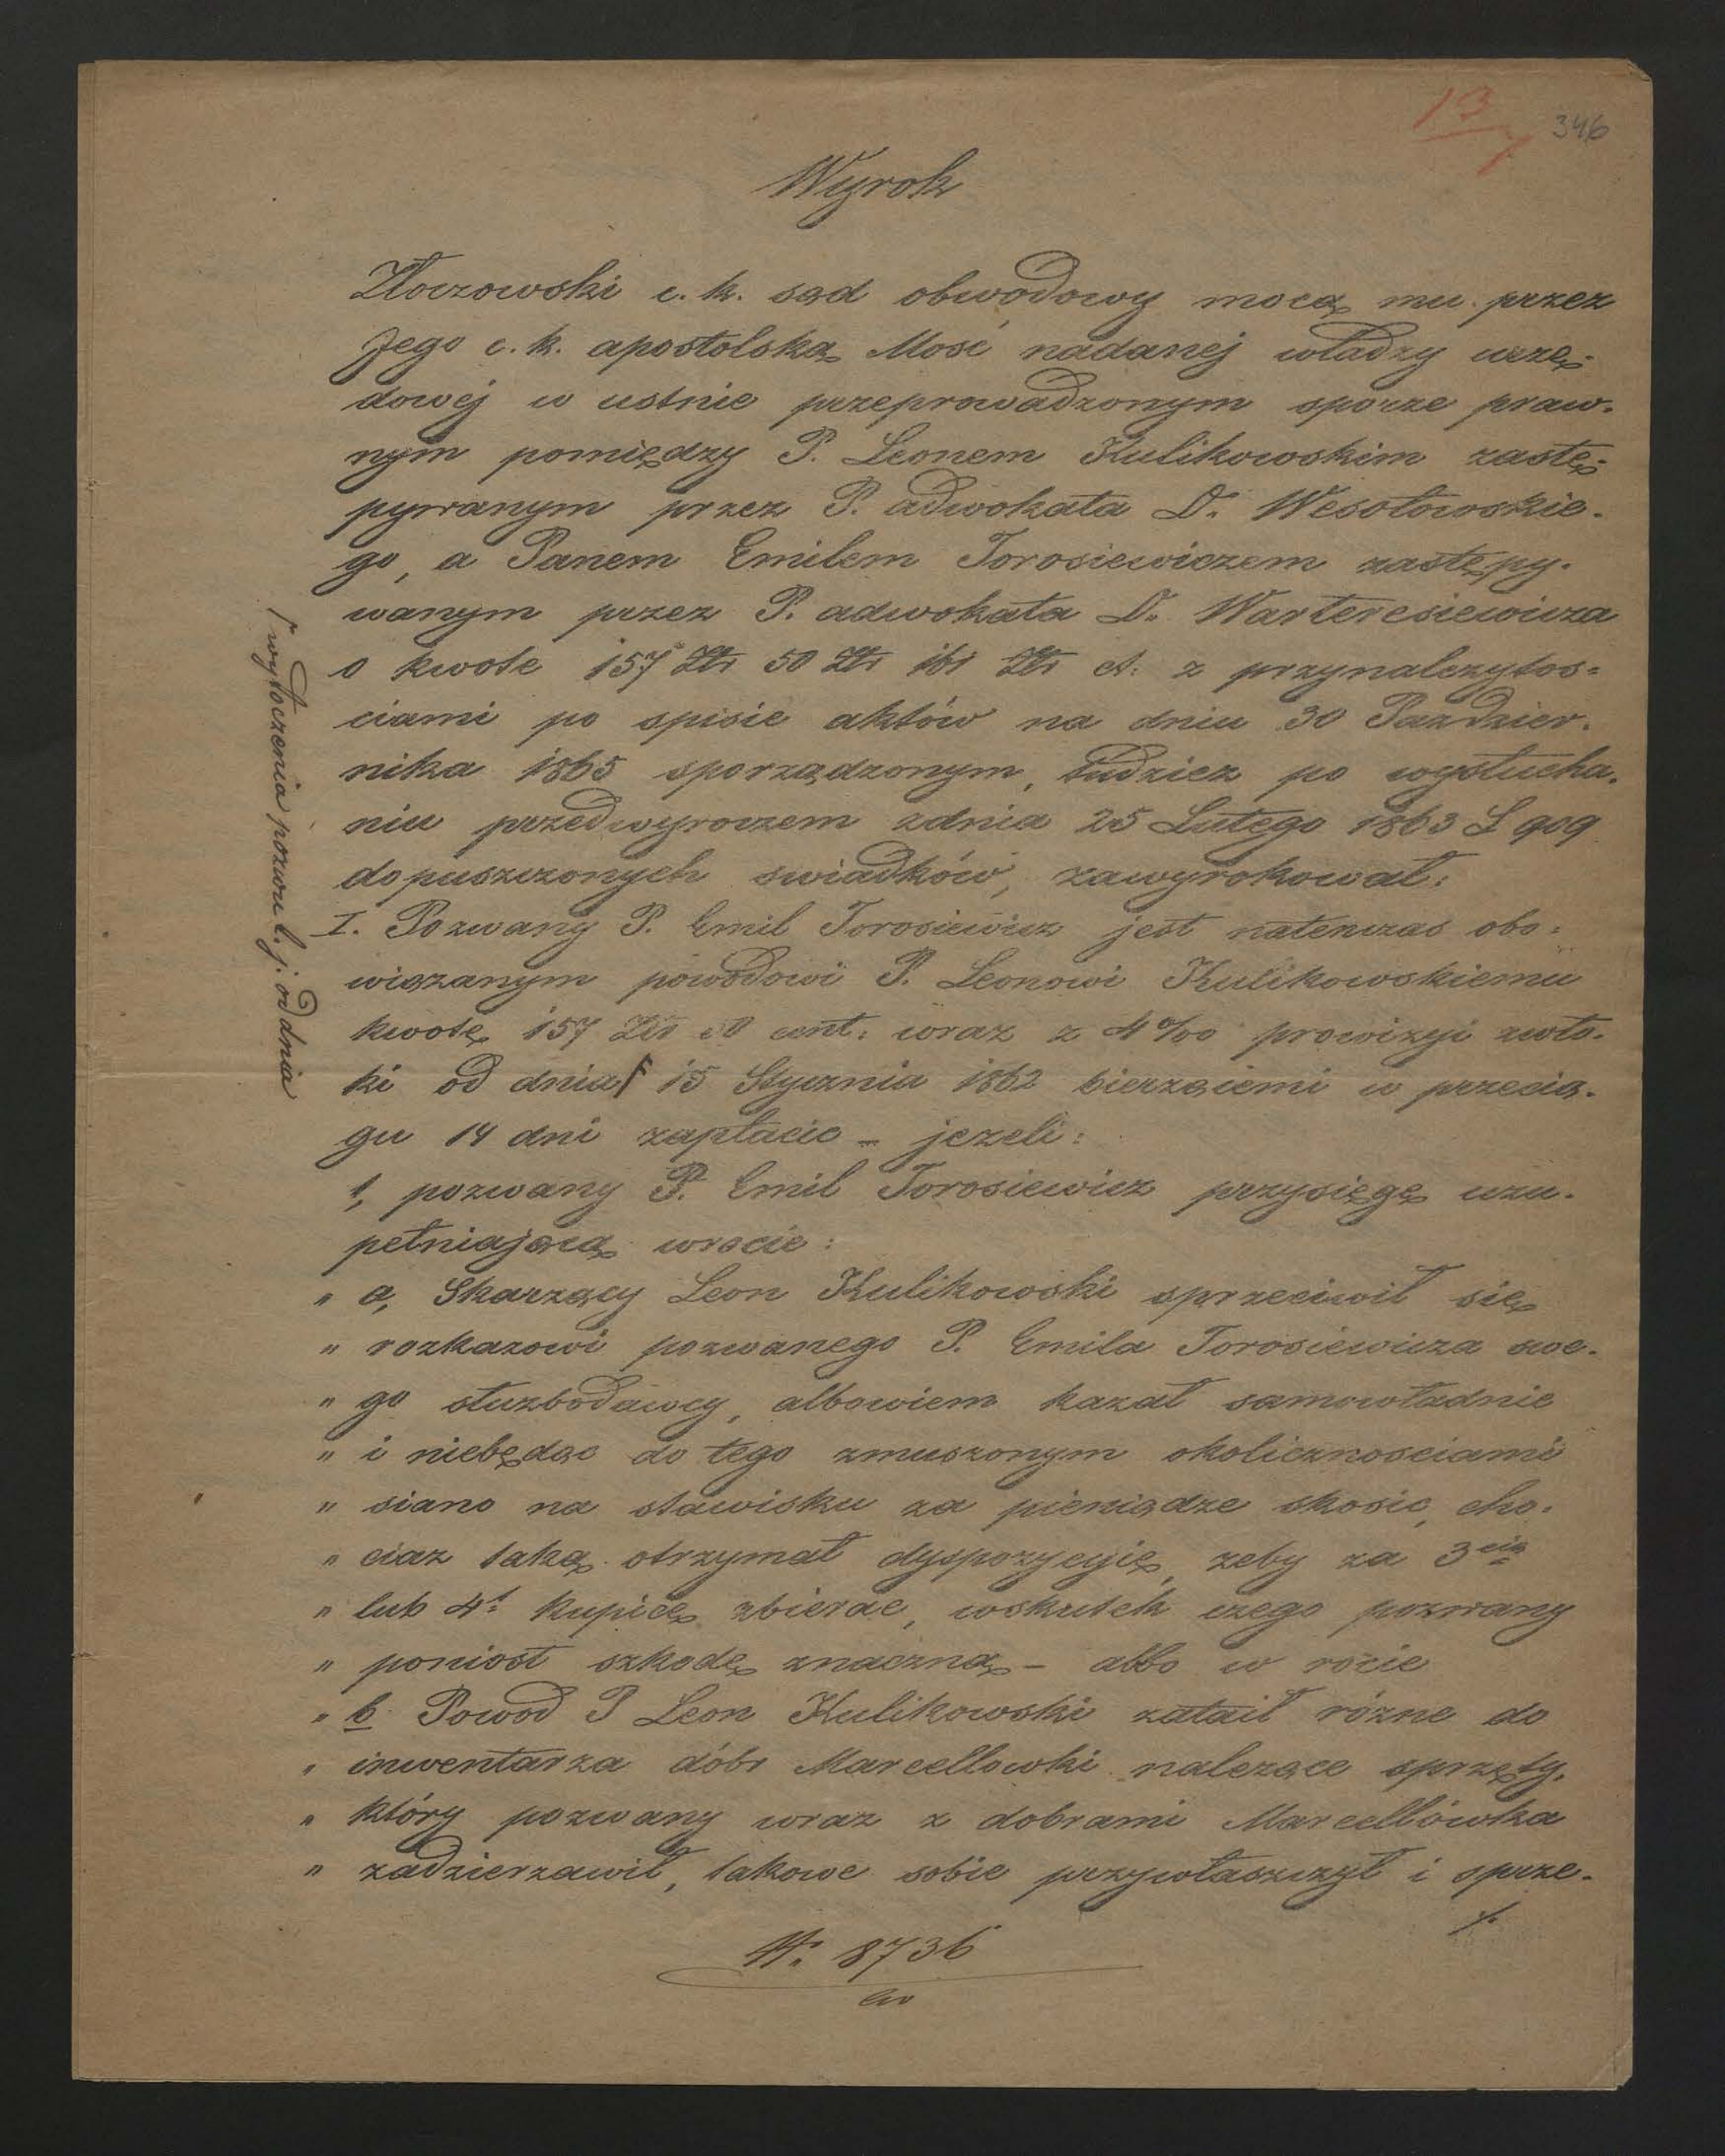 13/7 346
Wyrok
Złoczowski c. k. sąd obwodowy mocą mu przez
Jego c. k. apostolską Mość nadanéj władzy urzę-
dowéj w ustnie przeprowadzonym sporze praw-
nym pomiędzy P. Leonem Kulikowskim zastę-
pywanym przez P. adwokata Dr. Wesołowskie-
go, a Panem Emilem Torosiewiczem zastępy-
wanym przez P. adwokata Dr. Warteresiewicza
o kwote 157 Złr 50 Złr 161 Złr ct. z przynalezytos=
ciami po spisie aktów na dniu 30 Pazdzier-
nika 1865 sporządzonym, tudziez po wysłucha-
niu przedwyroczem zdnia 25 Lutego 1863 L 909
dopuszczonych swiadków, zawyrokował:
I. Pozwany P. Emil Torosiewicz jest natenczas obo-
wiązanym powodowi P. Leonowi Kulikowskiemu
kwotę 157 Złr 50 cent: wraz z 4% prowizyi zwło-
ki od dnia ⌈ 15 Stycznia 1862 bierząiemi w przecią-
gu 14 dni zapłacic – jezeli:
1, pozwany P. Emil Torosiewicz przysięgę uzu-
pełniającą wrocie:
" a, Skarzący Leon Kulikowski sprzeciwił się
" rozkazowi pozwanego P. Emila Torosiewicza swe-
" go słuzbodawcy, albowiem kazał samowładnie
" i niebędąc do tego zmuszonym okolicznosciami
" siano na stawisku za pieniądze skosic, cho-
" ciaz taką otrzymał dyspozycyię, zeby za 3cią
" lub 4t kupicę zbierac, wskutek czego pozwany
" poniosł szkodę znaczną – albo w rocie
" b Powod P Leon Kulikowski zataił rózne do
" inwentarza dóbr Marcellowki nalezące sprzęty,
" który pozwany wraz z dobrami Marcellówka
" zadzierzawił, takowe sobie przywłaszczył i sprze-
⌈ wytoczenia pozwu t. j. od dnia
8736